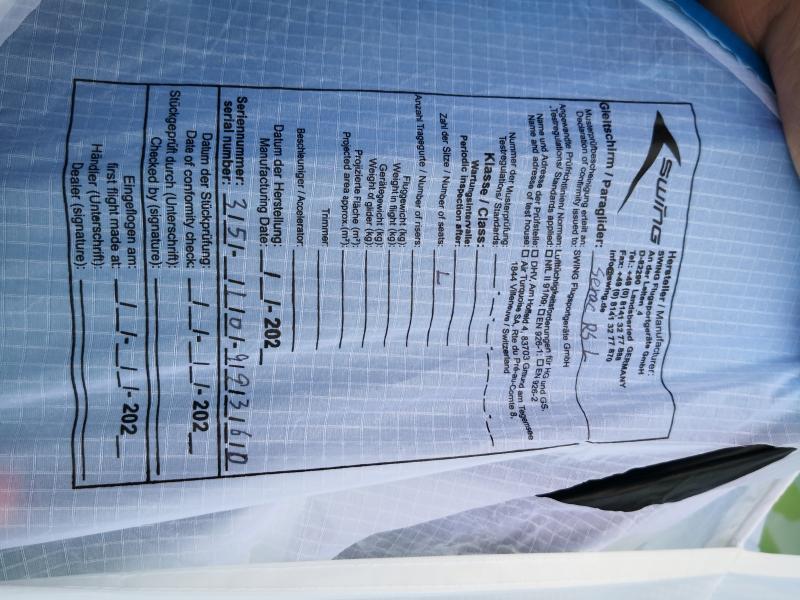 SWING
Hersteller / Manufacturer:
SWING Flugsportgeräte GmbH
An der Leiten 4
D-82290 Landsberied GERMANY
Tel.: +49 (0) 8141 32 77 888
Fax: +49 (0) 8141 32 77 870
info@swing.de
Gleitschirm / Paraglider: Serac RS L
Musterprüfbescheinigung erteilt an:
Declaration of conformity issued to: SWING Flugsportgeräte GmbH
Angewandte Prüfrichtlinien/ Normen: Lufttüchtigkeitsforderungen für HG und GS,
Testregulations/ Standards applied: NfL II 91/09, EN 926-1; EN 926-2
Name und Adresse der Prüfstelle: DHV, Am Hoffeld 4, 83703 Gmund am Tegernsee
Name and adresse of test house: Air Turquoise SA, Rte du Pré-au-Comte 8,
1844 Villeneuve / Switzerland
Nummer der Musterprüfung:
Testregulations/ Standards:
Klasse / Class:
Wartungsintervalle:
Periodic inspection after:
Zahl der Sitze / Number of seats: L
Anzahl Tragegurte / Number of risers:
Fluggewicht (kg):
Weight in flight (kg):
Gerätegewicht (kg):
Weight of glider (kg):
Projizierte Fläche (m²):
Projected area approx.(m²):
Trimmer
Beschleuniger / Accelerator
Datum der Herstellung:
Manufacturing Date: __/__/-202_
Seriennummer:
serial number: 3/5/- 1/1/0/-9/2/3/6/0
Datum der Stückprüfung:
Date of conformity check: __/__/-202_
Stückgeprüft durch (Unterschrift):
Checked by (signature):
Eingeflogen am:
first flight made at: __/__/-202_
Händler (Unterschrift):
Dealer (signature):